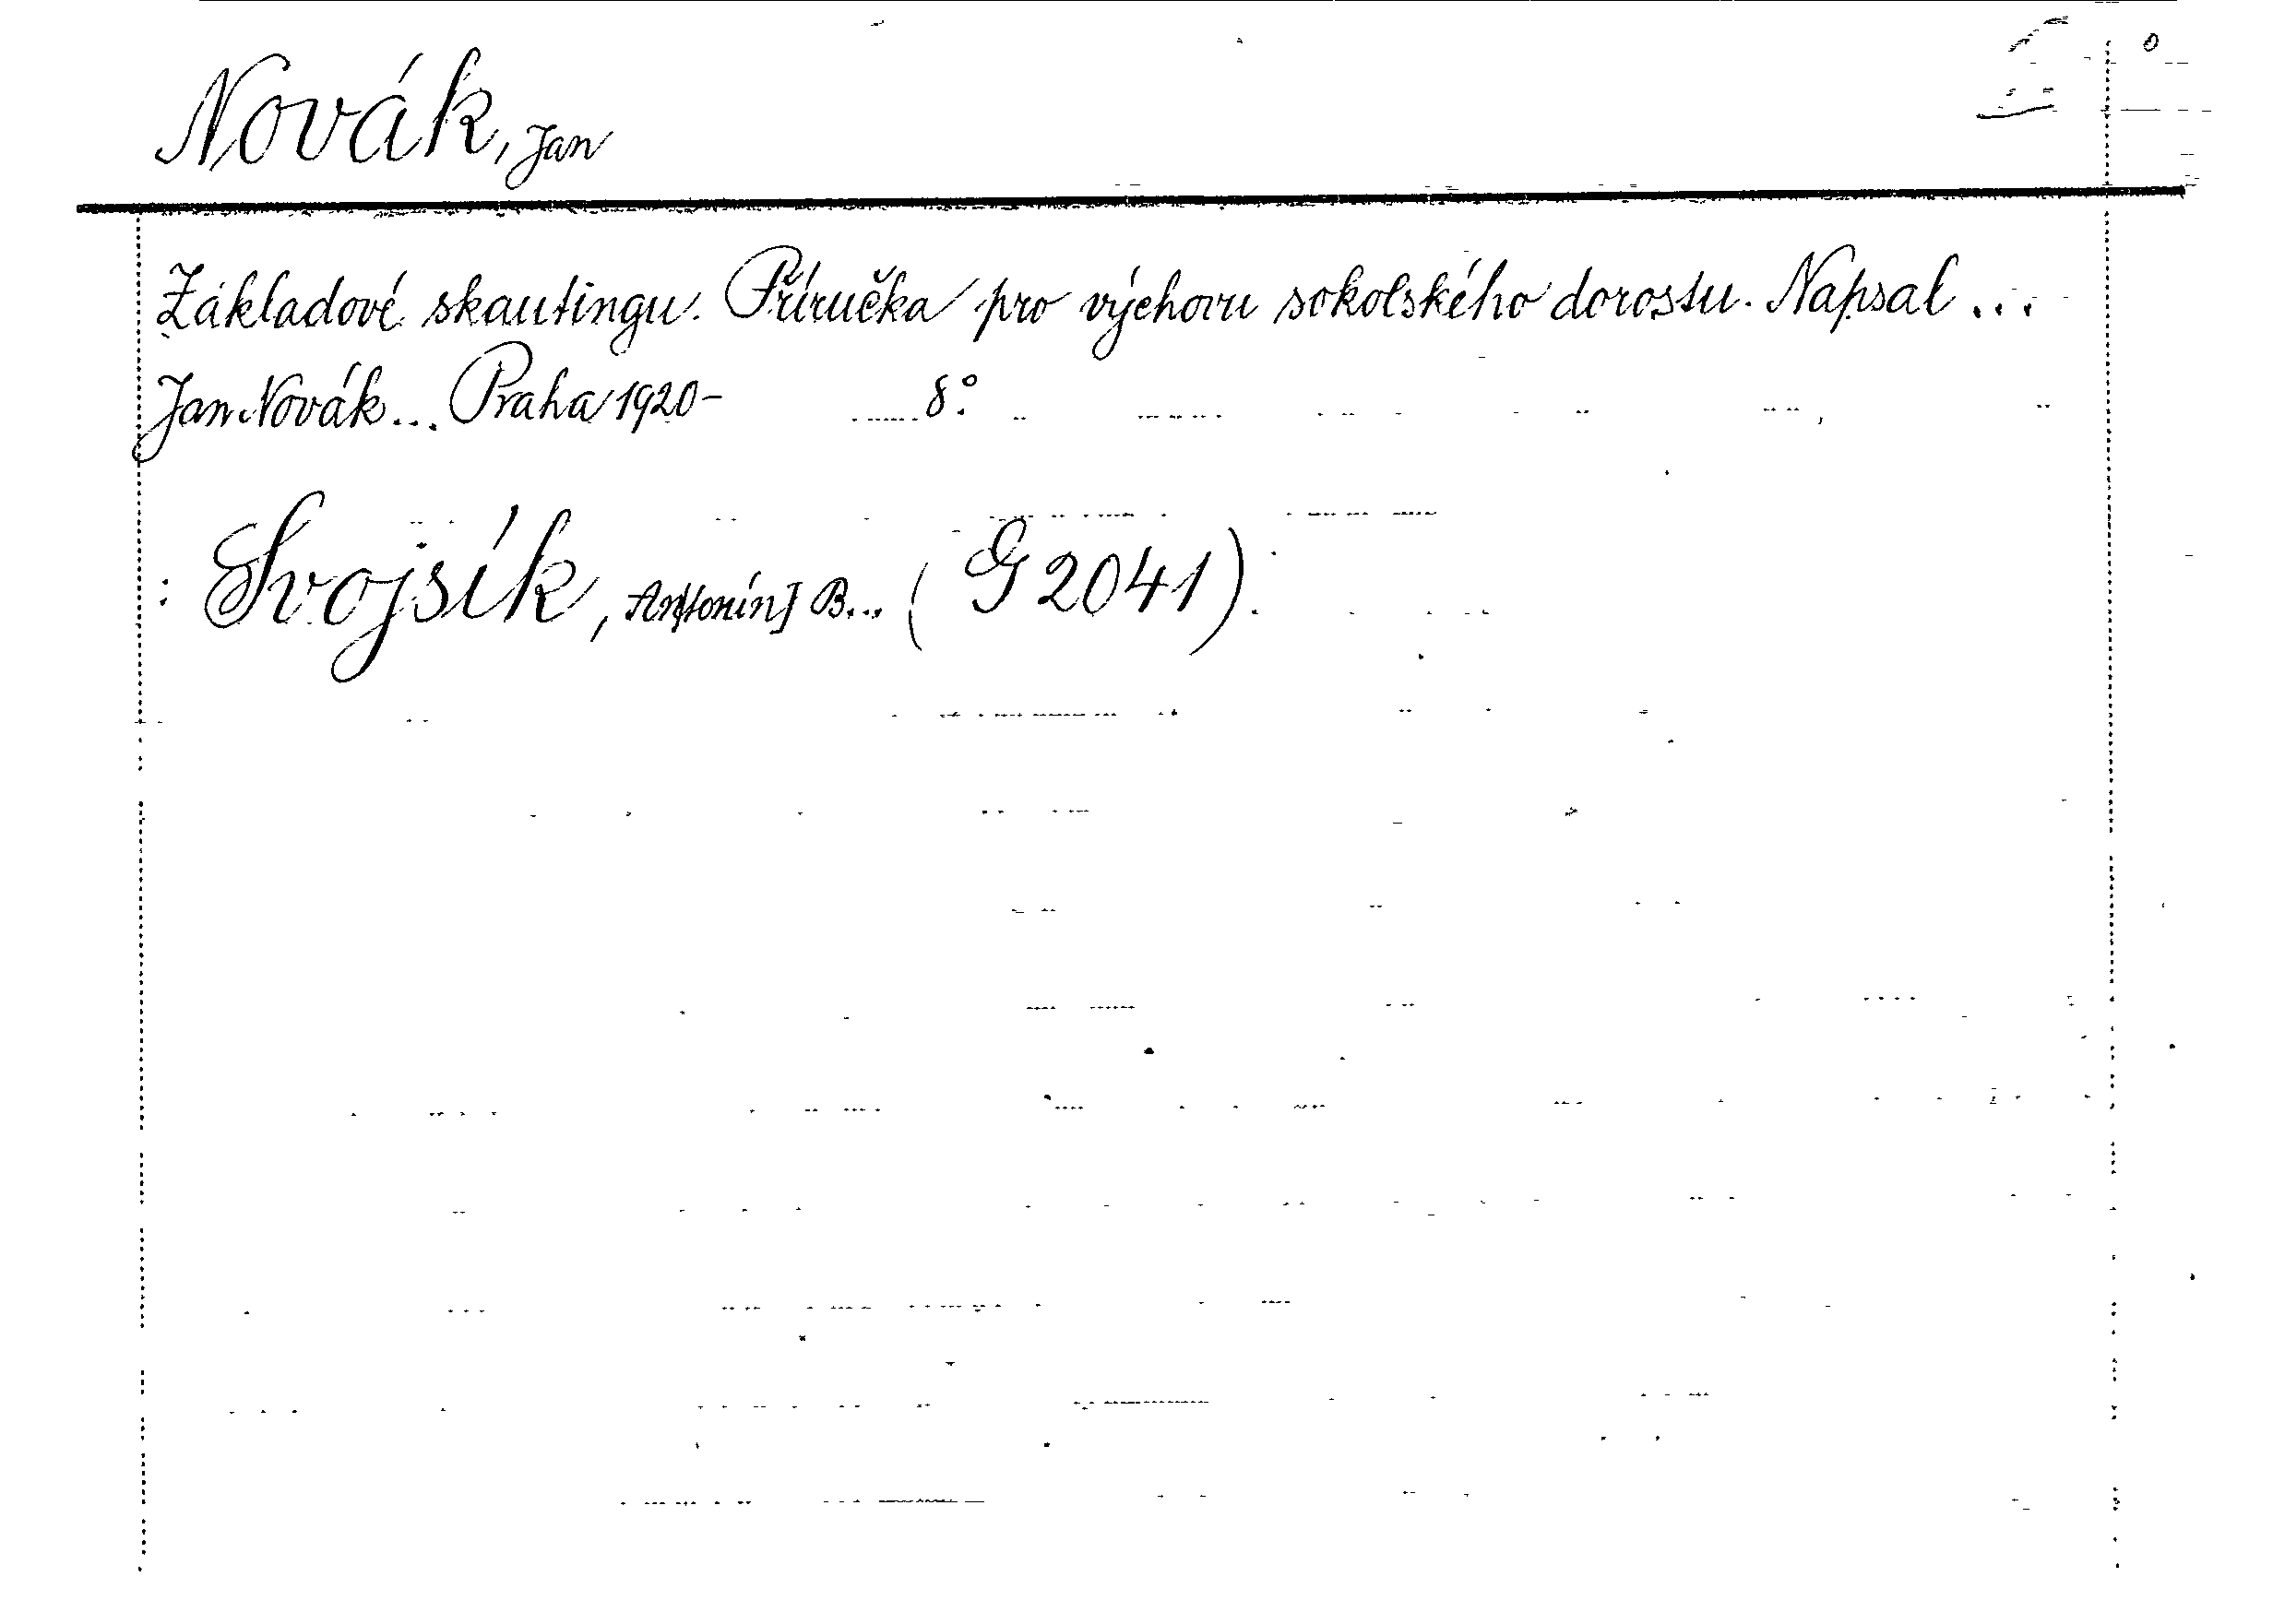 Novák, Jan
Základové skautingu. Příručka pro výchovu sokolského dorostu. Napsal ...
Jan Novák ... Praha 1920- 8°.
: Svojsík, An[tonín] B... (G 2041).